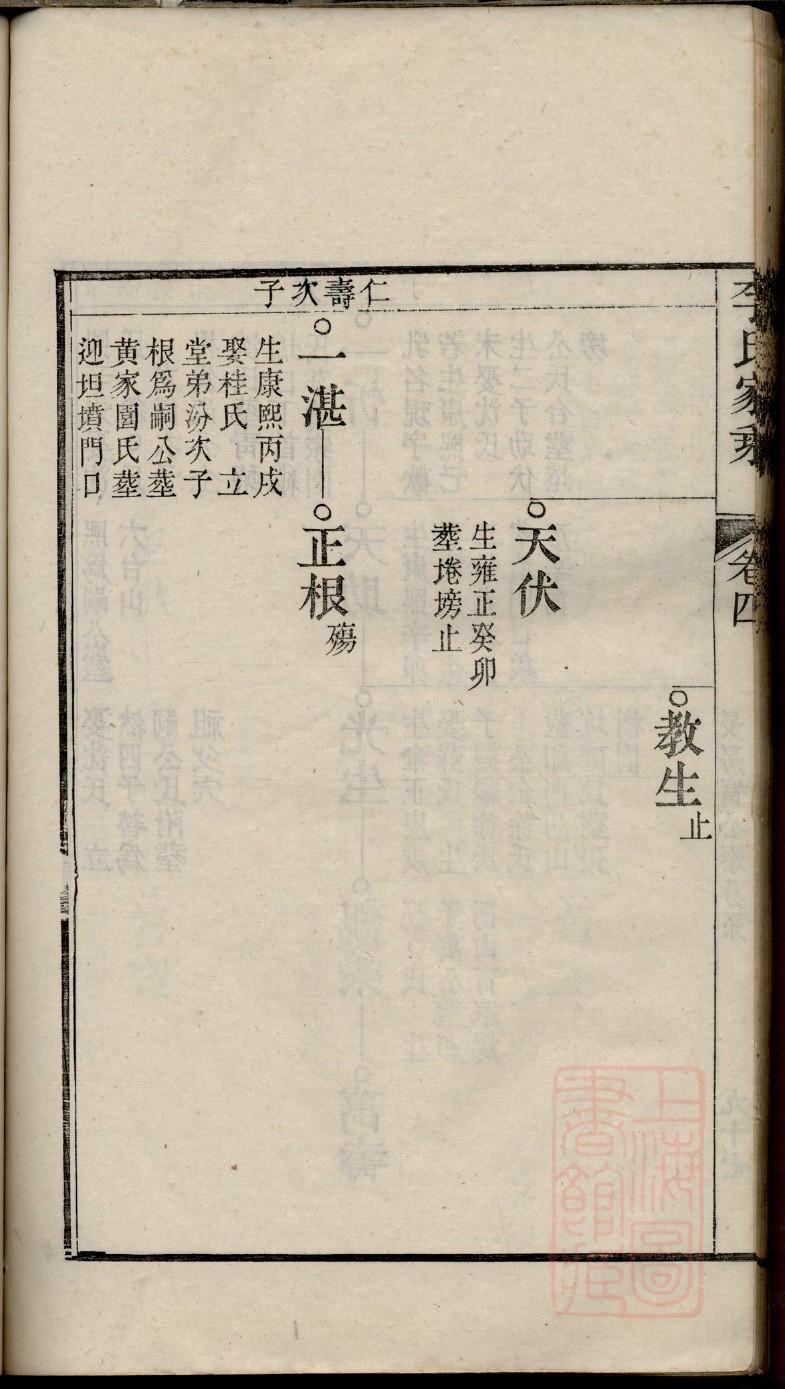 李氏家乘
卷四
教生止
天伏
生雍正癸卯
塟埢塝止
仁壽次子
一湛
生康熙丙戌
娶桂氏 立
堂弟汾次子
根爲嗣公塟
黄家園氏塟
迎坦墳門口
正根殤
上海圖
書館藏